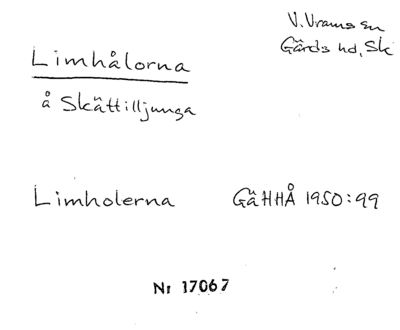 V. Vrams sn
Gärds hd, Sk
Limhålorna
å Skättilljunga
Limholerna GäHHÅ 1950:99
Nr 17067